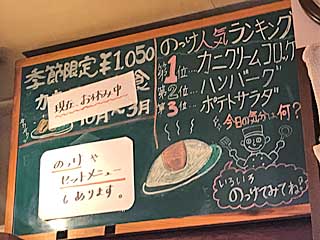 季節限定¥1,050
カ
食
現在、お休み中
10月〜3月
のっけや
セットメニュー
もあります。
のっけ人気ランキング
第1位…カニクリームコロッケ
第2位…ハンバーグ
第3位…ポテトサラダ
今日の気分は何?
いろいろ
のっけてみてね♡